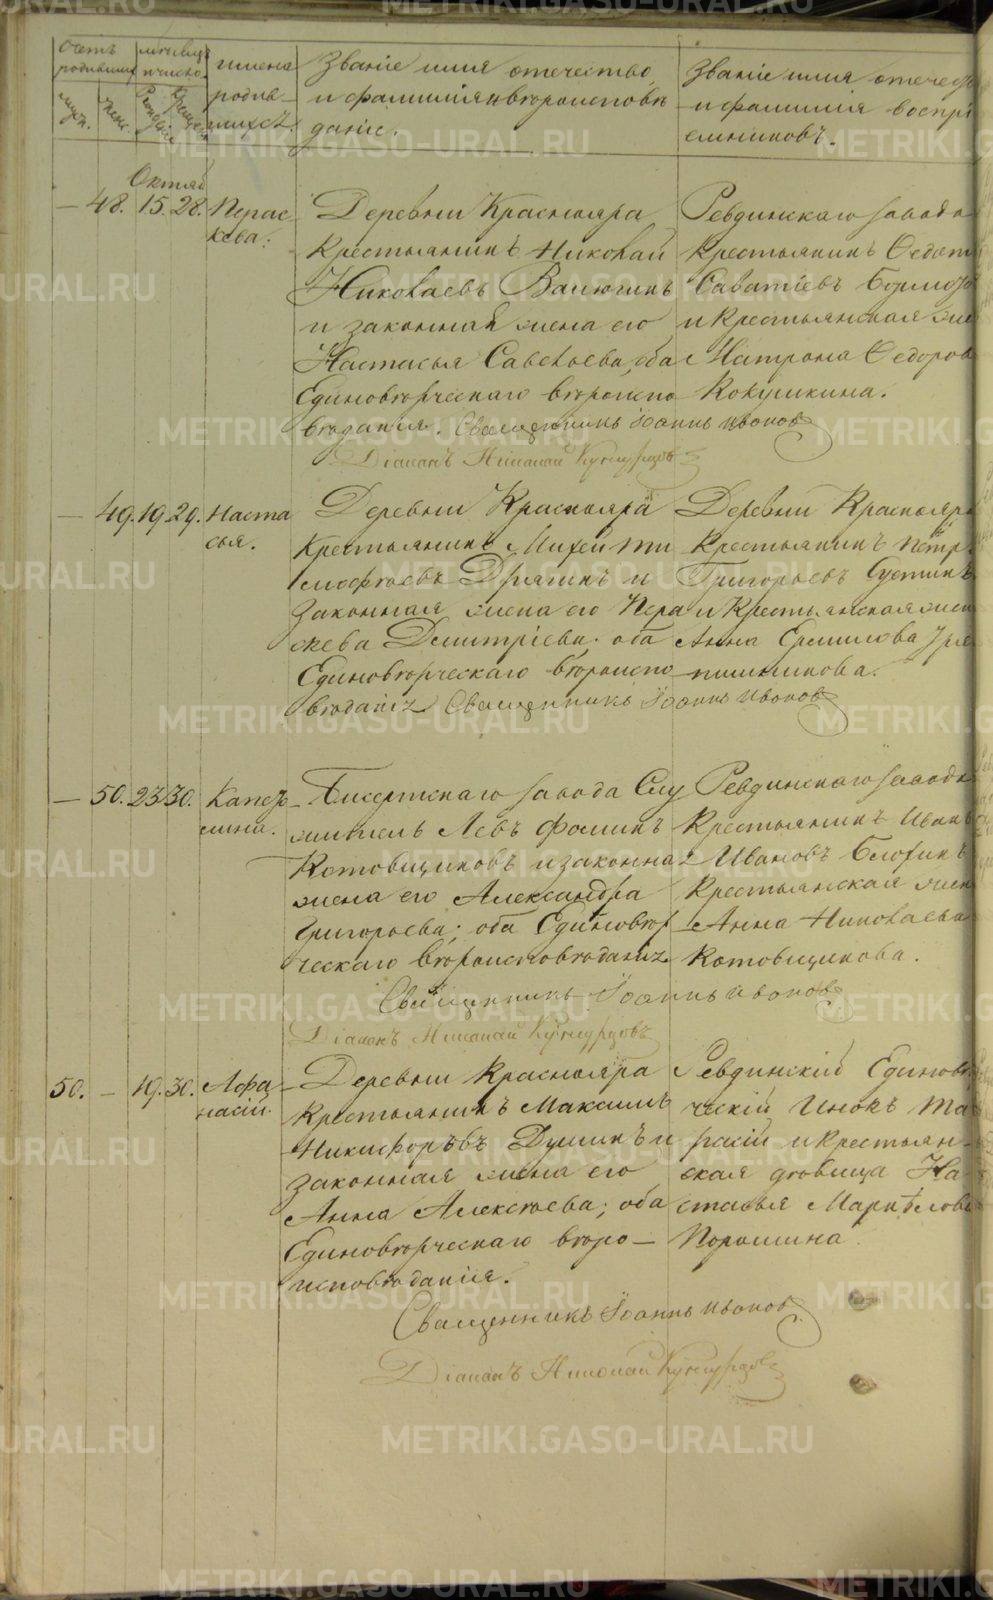 Счетъ родившихся
мѣсяцъ и число
имена родив- шихся.
Званіе имя отечество
и фамилія и вѣроисповѣ
даніе.
Званіе имя отечес
и фамилія воспрі
емниковъ.
муж.
женс.
Рожденіе
Крещен
Октяб
— 48. 15. 28. Парас
кева.
Деревни Краснояра
Крестьянинъ Николай
Николаевъ Валюгинъ
и законная жена его
Настасья Савельева, оба
Единовѣрческаго вѣроиспо
вѣданія. Священникъ Іоаннъ Ивонов
Діаконъ Николай Кунгурцовъ
Ревдинскаго завода
Крестьянинъ Ѳедотъ
Саватіевъ
и Крестьянская же
Матрона Ѳедоров
Кокушкина.
— 49. 19. 29. Наста
сья.
Деревни Краснояра
Крестьянинъ Михей Ти
моѳеевъ Дрягинъ и
законная жена его Пера
скева Дмитріева. оба
Единовѣрческаго вѣроиспо
вѣданія Священникъ Іоаннъ Ивонов
Деревни Краснояра
Крестьянинъ Петръ
Григорьевъ Сустинъ
и Крестьянская жен
Анна Ермилова
пишникова.
— 50. 23. 30. Капето
лина.
Бисертскаго завода Слу
житель Левъ Фоминъ
Котовщиковъ и законная
жена его Александра
Григорьева; оба Единовѣр
ческаго вѣроисповѣданія
Священникъ Іоаннъ Ивонов
Діаконъ Николай Кунгурцовъ
Ревдинскаго завода
Крестьянинъ Иванъ
Ивановъ Блохинъ
Крестьянская жен
Анна Николаева
Котовщикова.
50. — 19. 30. Афа
насій.
Деревни Краснояра
Крестьянинъ Максимъ
Никифоръвъ Душинъ и
законная жена его
Анна Алексѣева; оба
Единовѣрческаго вѣро—
исповѣданія.
Священникъ Іоаннъ Ивонов
Діаконъ Николай Кунгурцовъ
Ревдинскій Единовѣ
ческій Инокъ Та
расій и крестьян-
ская дѣвица На-
стасья Маркѣлова
Порошина.
METRIKI.GASO-URAL.RU